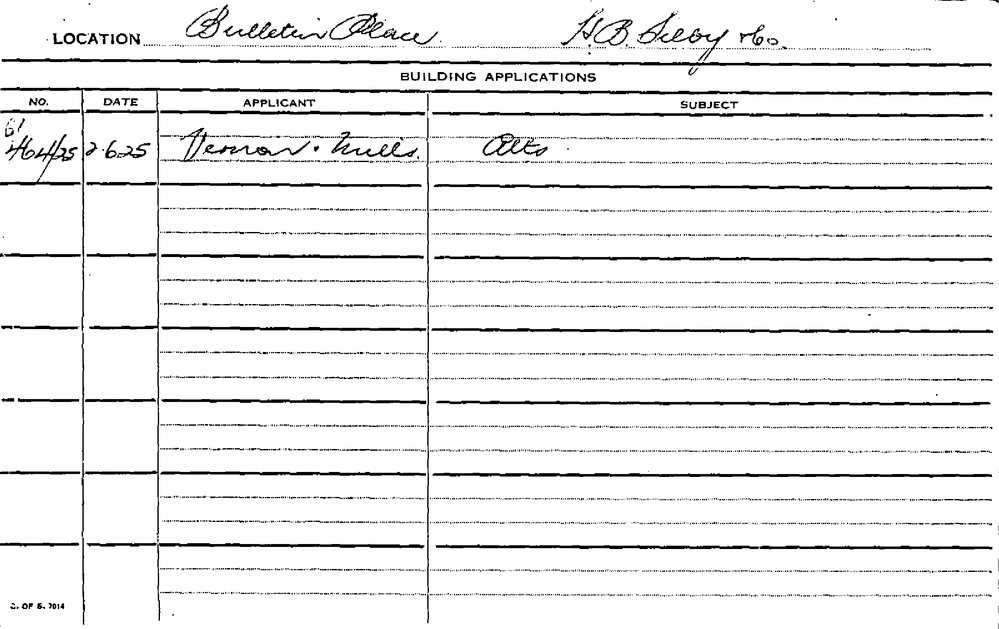 LOCATION Bulletin Place. H.B. Selby & Co.
BUILDING APPLICATIONS
NO. DATE APPLICANT SUBJECT
61
464/25 2.6.25 Vernon & Mills. Alts
C. OF S. 7014